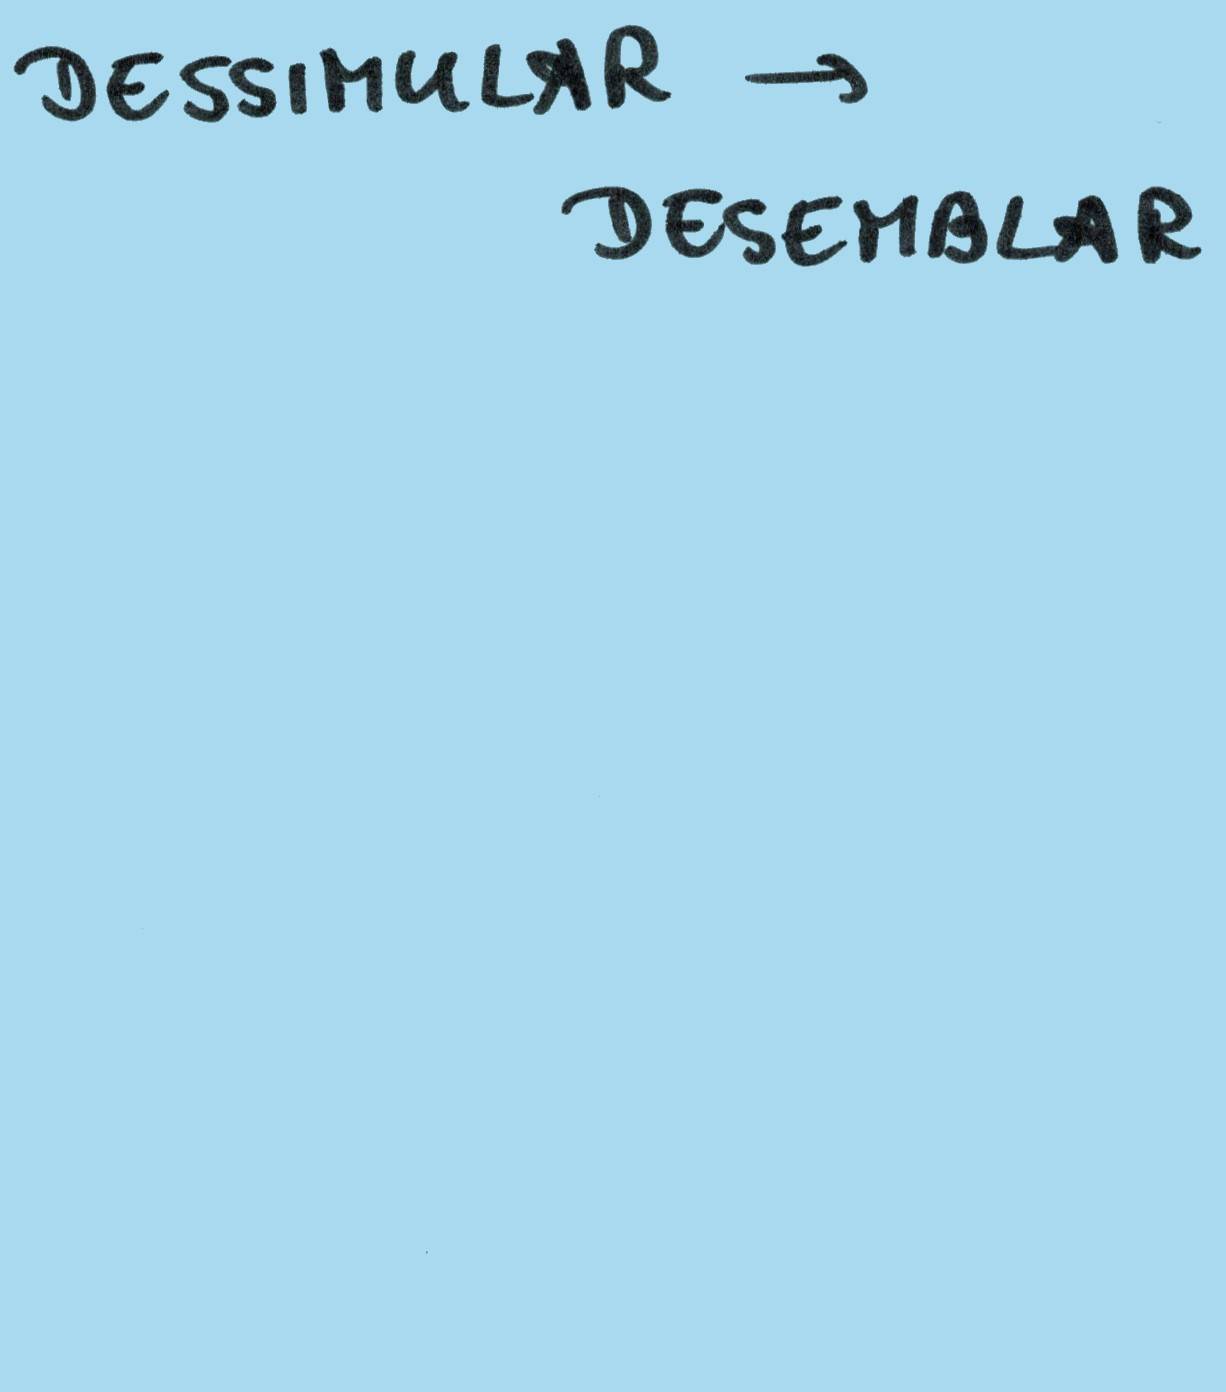 DESSIMULAR →
DESEMBLAR